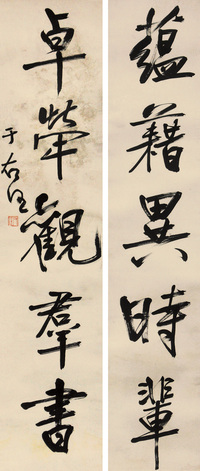 蕴藉異時輩
卓犖觀羣書
于右任